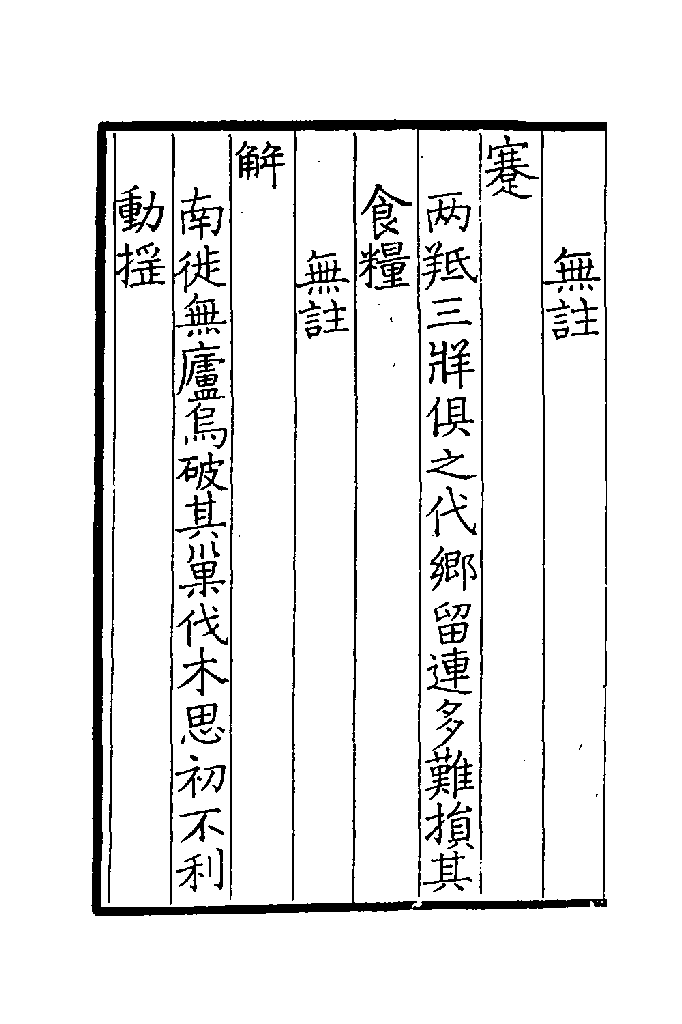 無註
蹇
两羝三牂俱之代鄉留連多難損其
食糧
無註
解
南徙無廬烏破其巢伐木思初不利
動揺